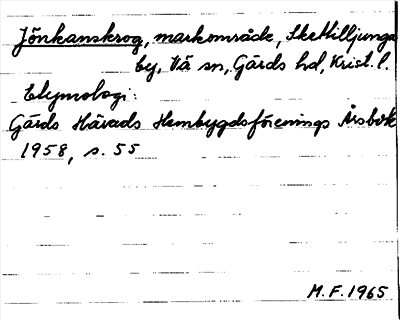 Jönkanskrog, markområde, Skettilljunga
by, Vä sn, Gärds hd, Krist. l.
Etymologi:
Gärds Härads Hembygdsförenings Årsbok
1958, s. 55
M.F. 1965